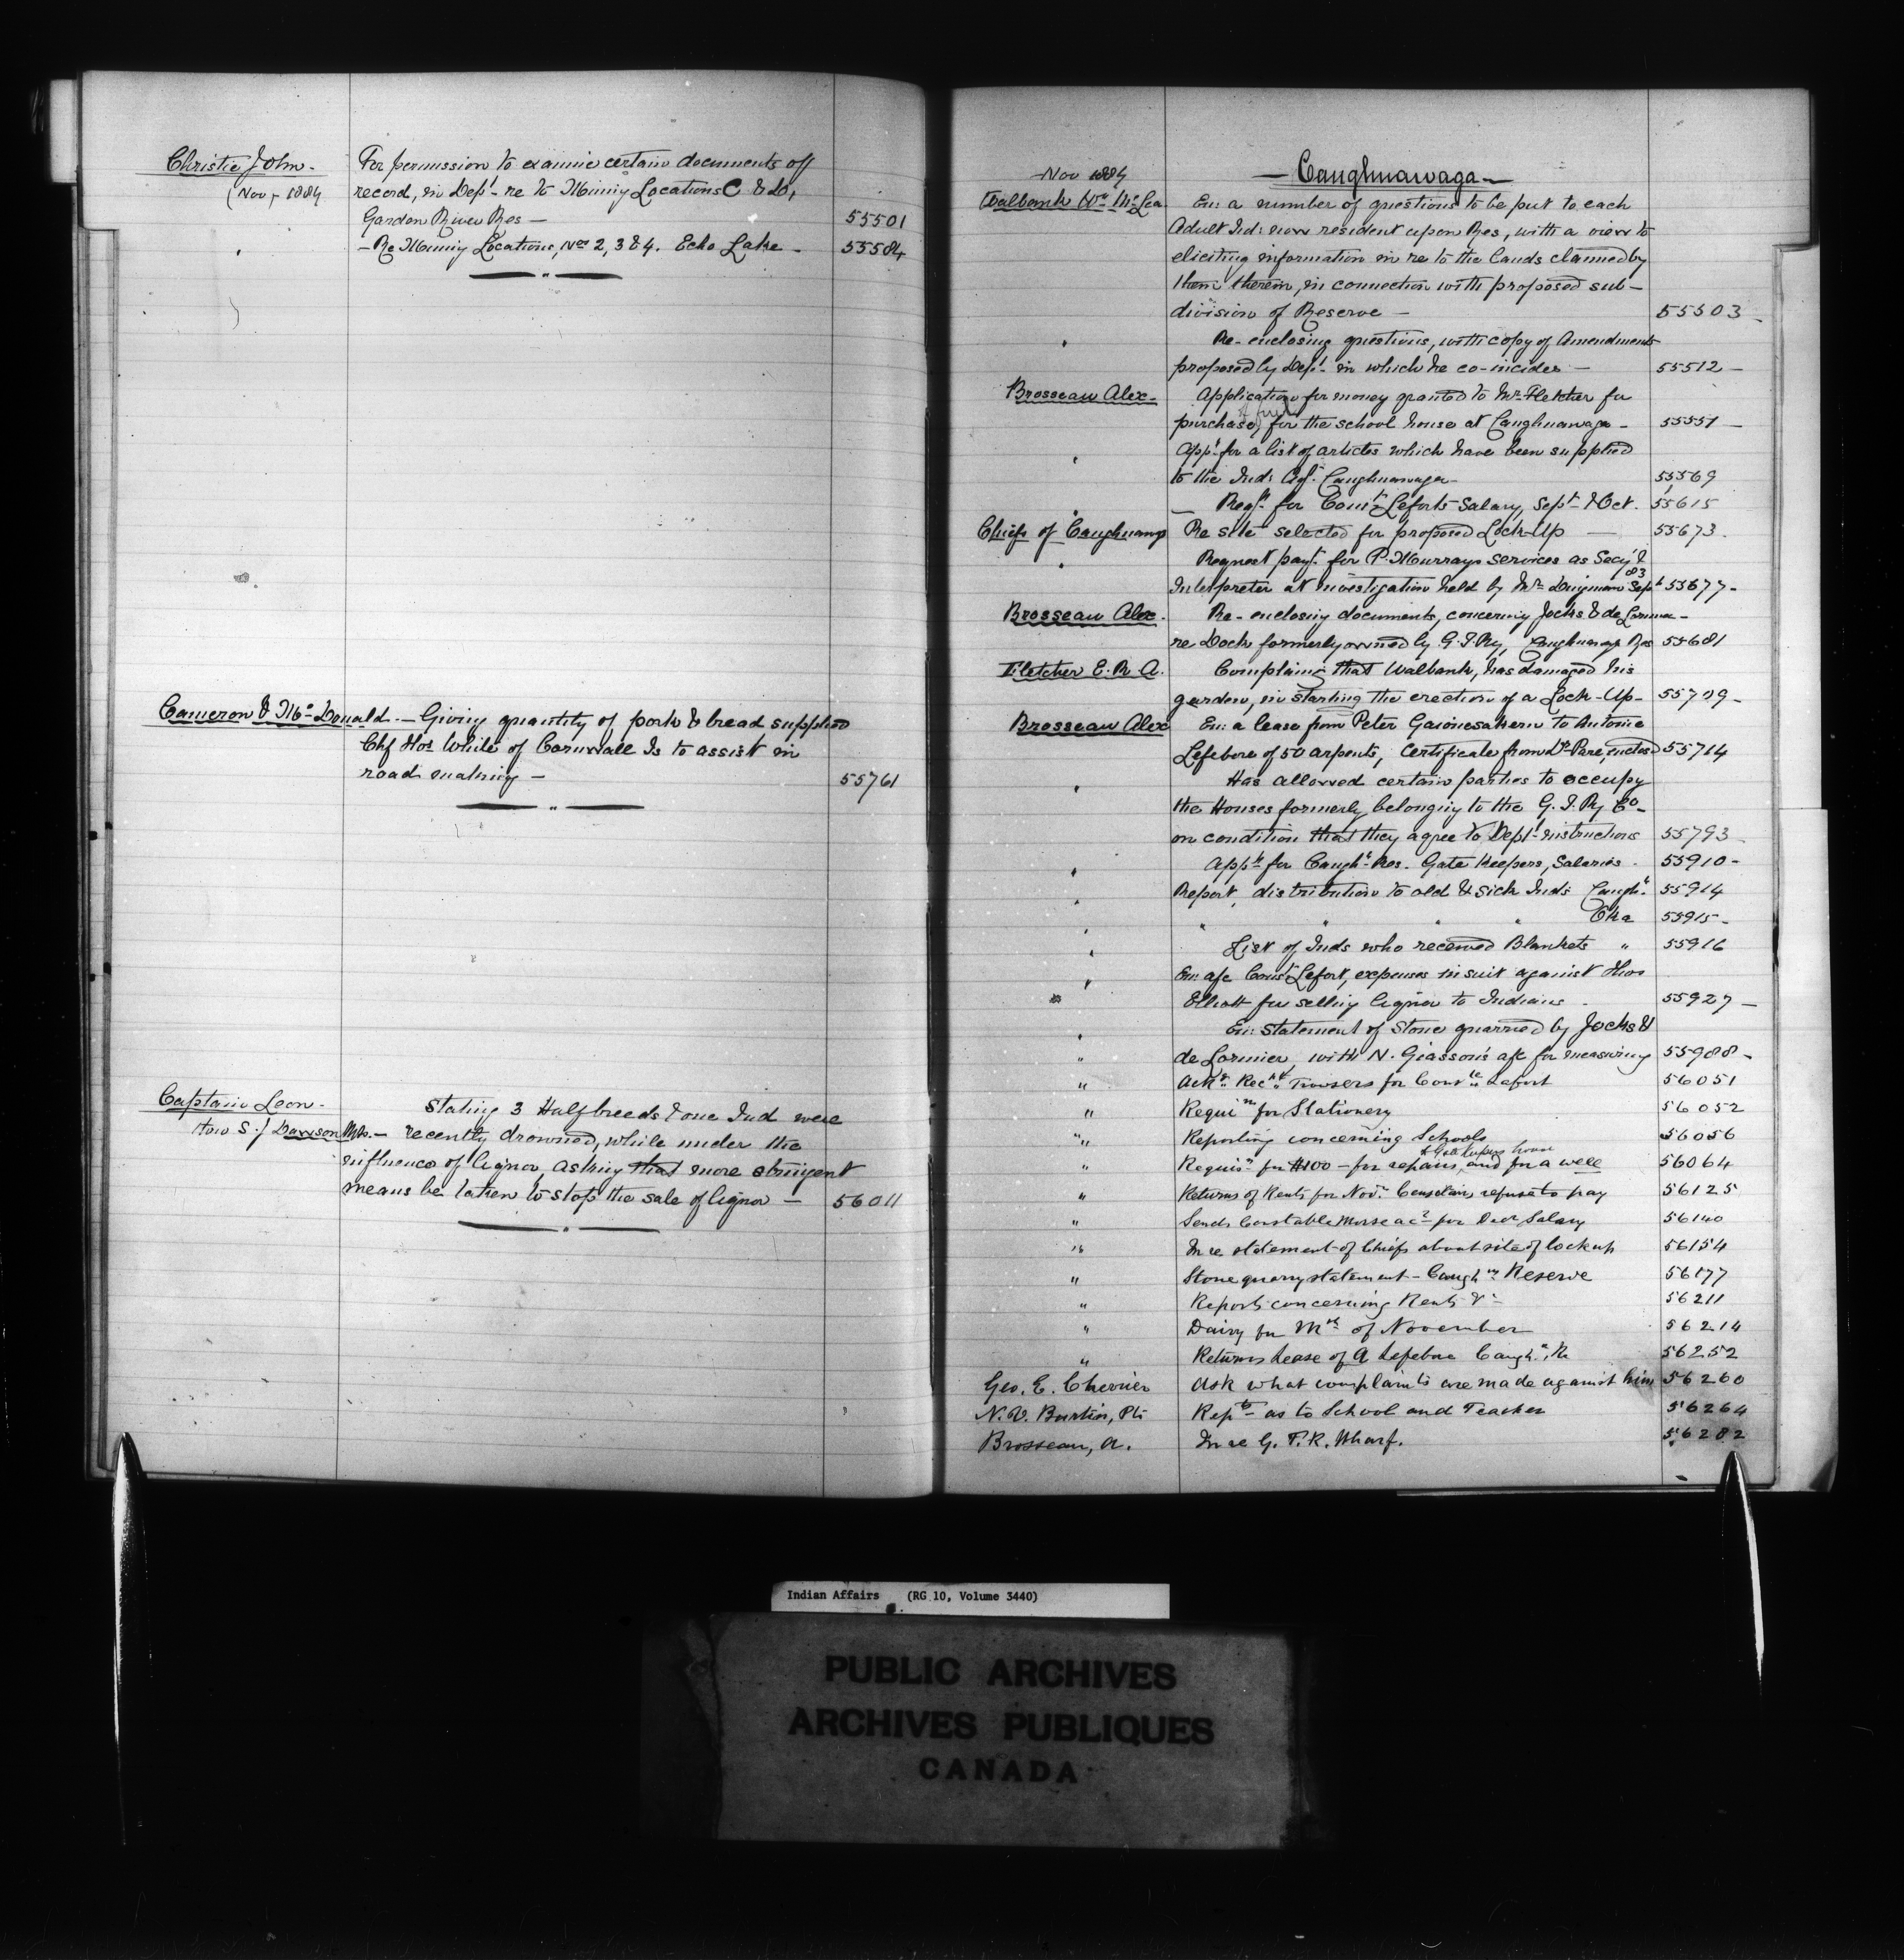 Christie John - For permission to examine certain documents off
(Nov - 1884 record, in Dept - re to Mining Locations C & D,
Garden River Res - 55501
" - Re Mining Locations, Nos 2, 3 & 4. Echo Lake - 55584
Cameron & McDonald. - Giving quantity of pork & bread supplied
Chf Hos White of Cornwall Is to assist in
road making - 55761
Captain Leon - Stating 3 Halfbreeds & one Ind were
S. J Dawson Mto. - recently drowned, while under the
influence of liquor, asking that more stringent
means be taken to stop the sale of liquor - 56011
Nov 1884 - Caughnawaga -
Walbank Wm McLea En: a number of questions to be put to each
Adult Ind: now resident upon Res, with a view to
eliciting information in re to the lands claimed by
them therein, in connection with proposed sub-
division of Reserve - 55503 -
" Re-enclosing questions, with copy of Amendments
proposed by Dept - in which he co-incides - 55512 -
Brosseau Alex - Application for money granted to Mr Fletcher for
purchase, of fuel for the school house at Caughnawaga - 55551 -
" Appn for a list of articles which have been supplied
to the Ind: Agt. Caughnawaga - 55569
" - Reqn for Const Leforts Salary, Sept - & Oct. 55615
Chiefs of Caughnawg Re site selected for proposed Lock-Up - 55673.
" Request payt for P. Murrays services as Secy &
Interpreter at investigation held by Mr Dingman Sept 83 55677 -
Brosseau Alex. Re-enclosing documents, concerning Jocks & de Lormier -
re Dock formerly owned by G. T. Ry, Caughnawaga Res 55681
Fletcher E. R. A. Complaining that Walbank, has damaged his
garden, in starting the erection of a Lock-Up - 55709 -
Brosseau Alex En: a lease from Peter to Antoine
Lefebvre of 50 arpents, Certificate from Dr Pare, enclosed 55714
" Has allowed certain parties to occupy
the Houses formerly belonging to the G. T. Ry Co -
on condition that they agree to Dept - instructions 55793
" Appn for Caugha - Res. Gate Keepers, Salaries - 55910 -
" Report, distribution to old & sick Inds Caugha. 55914
" " " " " Oka 55915 -
" List of Inds who received Blankets " 55916
" En: a/c Const Lefort, expenses in suit against Thos
" Elliott for selling liquor to Indians - 55927 -
" En: Statement of Stone quarried by Jocks &
" de Lormier, with N. Giasson's a/c for measuring 55988 -
" Ackg Rect " Trousers for Conste Lefort 56051
" Requin for Stationery 56052
" Reporting concerning Schools 56056
" Requisn for $100 - for repairs to Gate keepers house and for a well 56064
" Returns of Rents for Novr. Censitaires refuse to pay 56125
" Sends Constable Morse acct for Decr Salary 56140
" In re statement of Chiefs about site of lockup 56154
" Stone quarry statement - Caughn Reserve 56177
" Reports concerning Rents &c 56211
" Dairy for Mth of November 56214
" Returns Lease of A Lefebvre Caugh.a R 56252
Geo. E. Cherrier Ask what complaints are made against him 56260
N. V. Burtin, Pt Repts - as to School and Teacher 56264
Brosseau, A. In re G. T. R. Wharf. 56282
Indian Affairs (RG 10, Volume 3440)
PUBLIC ARCHIVES
ARCHIVES PUBLIQUES
CANADA